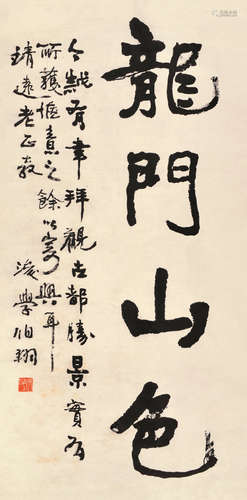 龍門山色
今有幸拜觀古都勝景實有
所獲愜意之餘以寄興耳
靖遠老正教
後學伯翔